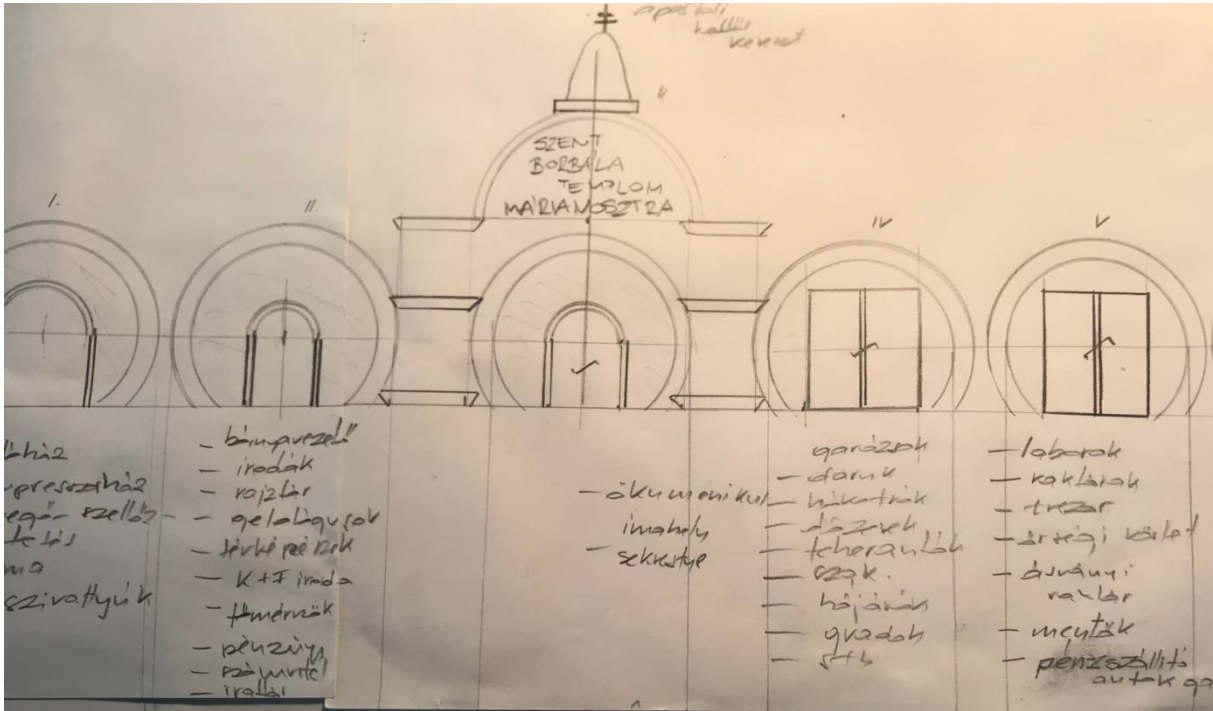 apostoli
kettős
kereszt
SZENT
BORBÁLA
TEMPLOM
MÁRIANOSZTRA
I.
II.
IV
V
presszorház
szellőz-
tetés
ma
szivattyúk
- bányavezető
- irodák
- rajztár
- geológusok
- térképészek
- K+F iroda
- főmérnök
- pénzügy
- számvitel
- irattár
- ökumenikus
imahely
- sekrestye
garázsok
- daruk
- dózerek
- teherautók
- szak.
- stb
- laborok
- raktárak
- trezor
- őrségi körlet
- ásványi
raktár
- mentők
- pénzszállító
autók ga